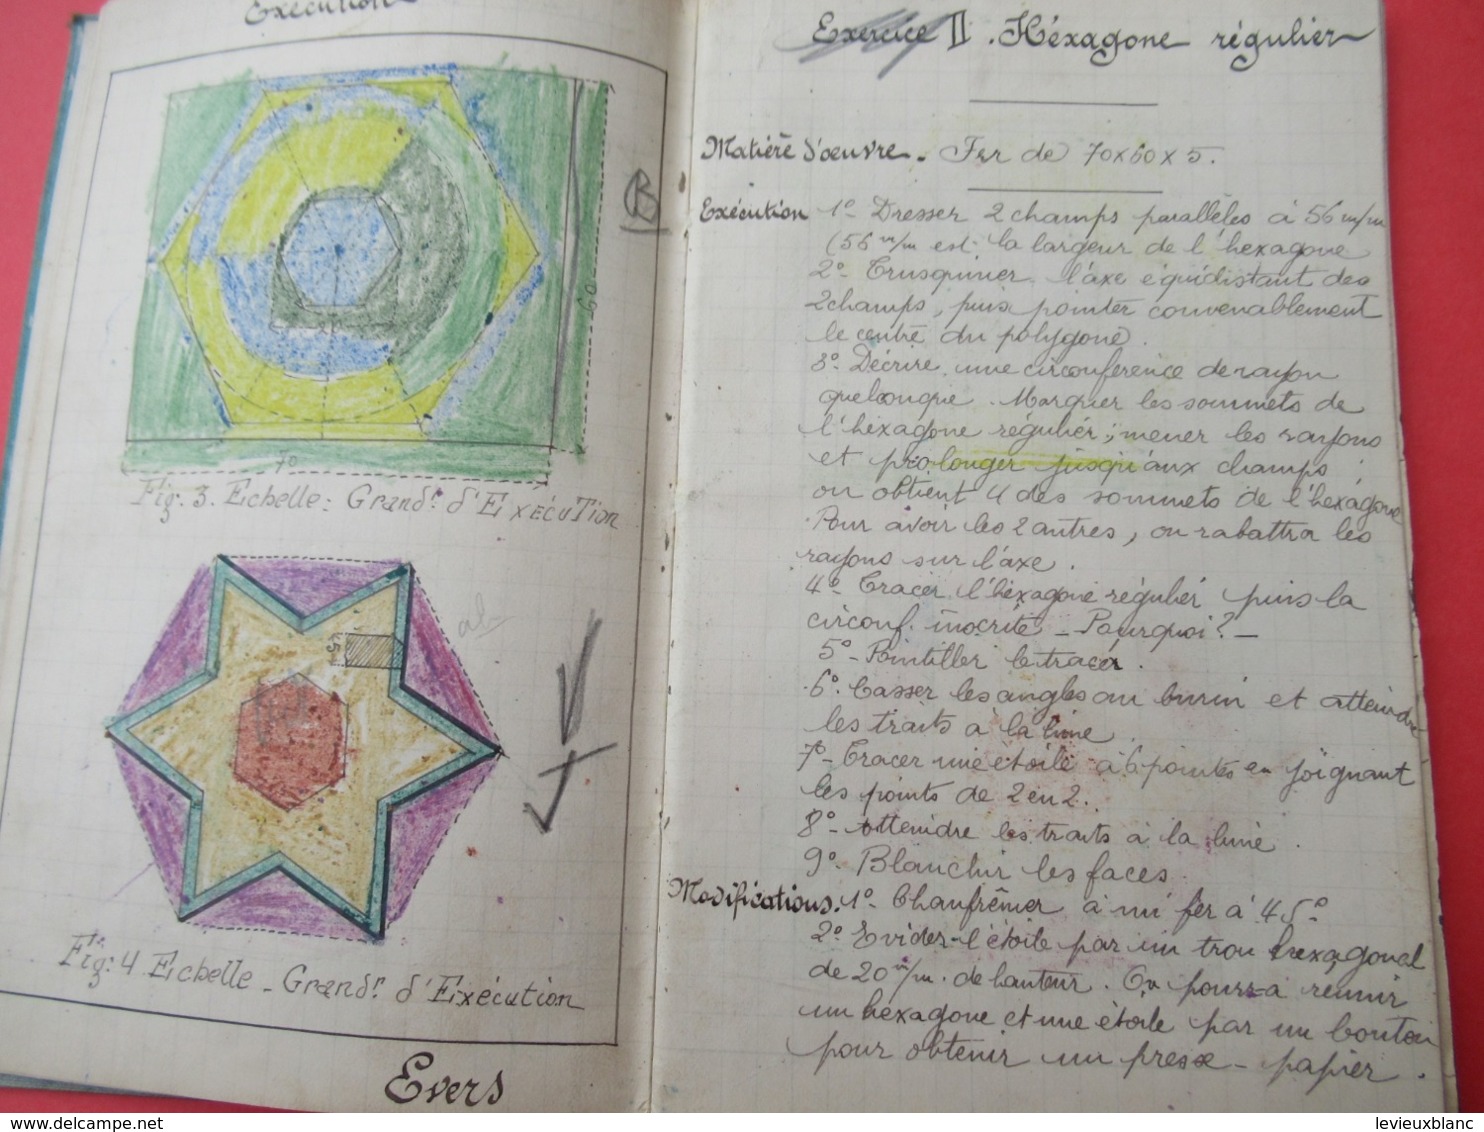 Exécution
B
60
20
70
Fig: 3. Echelle: Grandr d'ExécuTion
5
Fig: 4 Echelle - Grandr d'Exécution
Evers
Exercice II. Héxagone régulier
Matière d'œuvre. Fer de 70x60x5.
Exécution 1º Dresser 2 champs parallèles à 56 m/m
(56 m/m est la largeur de l'hexagone
2º- Trusquiner l'axe équidistant des
2 champs, puis pointer convenablement
le centre du polygone.
3º- Décrire une circonférence de rayon
quelconque. Marquer les sommets de
l'hexagone régulier; mener les rayons
et prolonger jusqu'aux champs;
on obtient 4 des sommets de l'hexagone
Pour avoir les 2 autres, on rabattra les
rayons sur l'axe.
4º- Tracer l'héxagone régulier puis la
circonf. inscrite - Pourquoi? -
5º- Pointiller le tracer.
6º. Casser les angles au burin et atteindre
les traits a la lime.
7º- Tracer une étoile à 6 pointes en joignant
les points de 2 en 2..
8º- Atteindre les traits à la lime.
9º. Blanchir les faces.
Modifications. 1º- Chanfrêiner à mi fer à 45º
2º Evider l'étoile par un trou hexagonal
de 20 m/m. de hauteur. On pourra réunir
un héxagone et une étoile par un bouton
pour obtenir un presse-papier.
www.delcampe.net
levieuxblanc